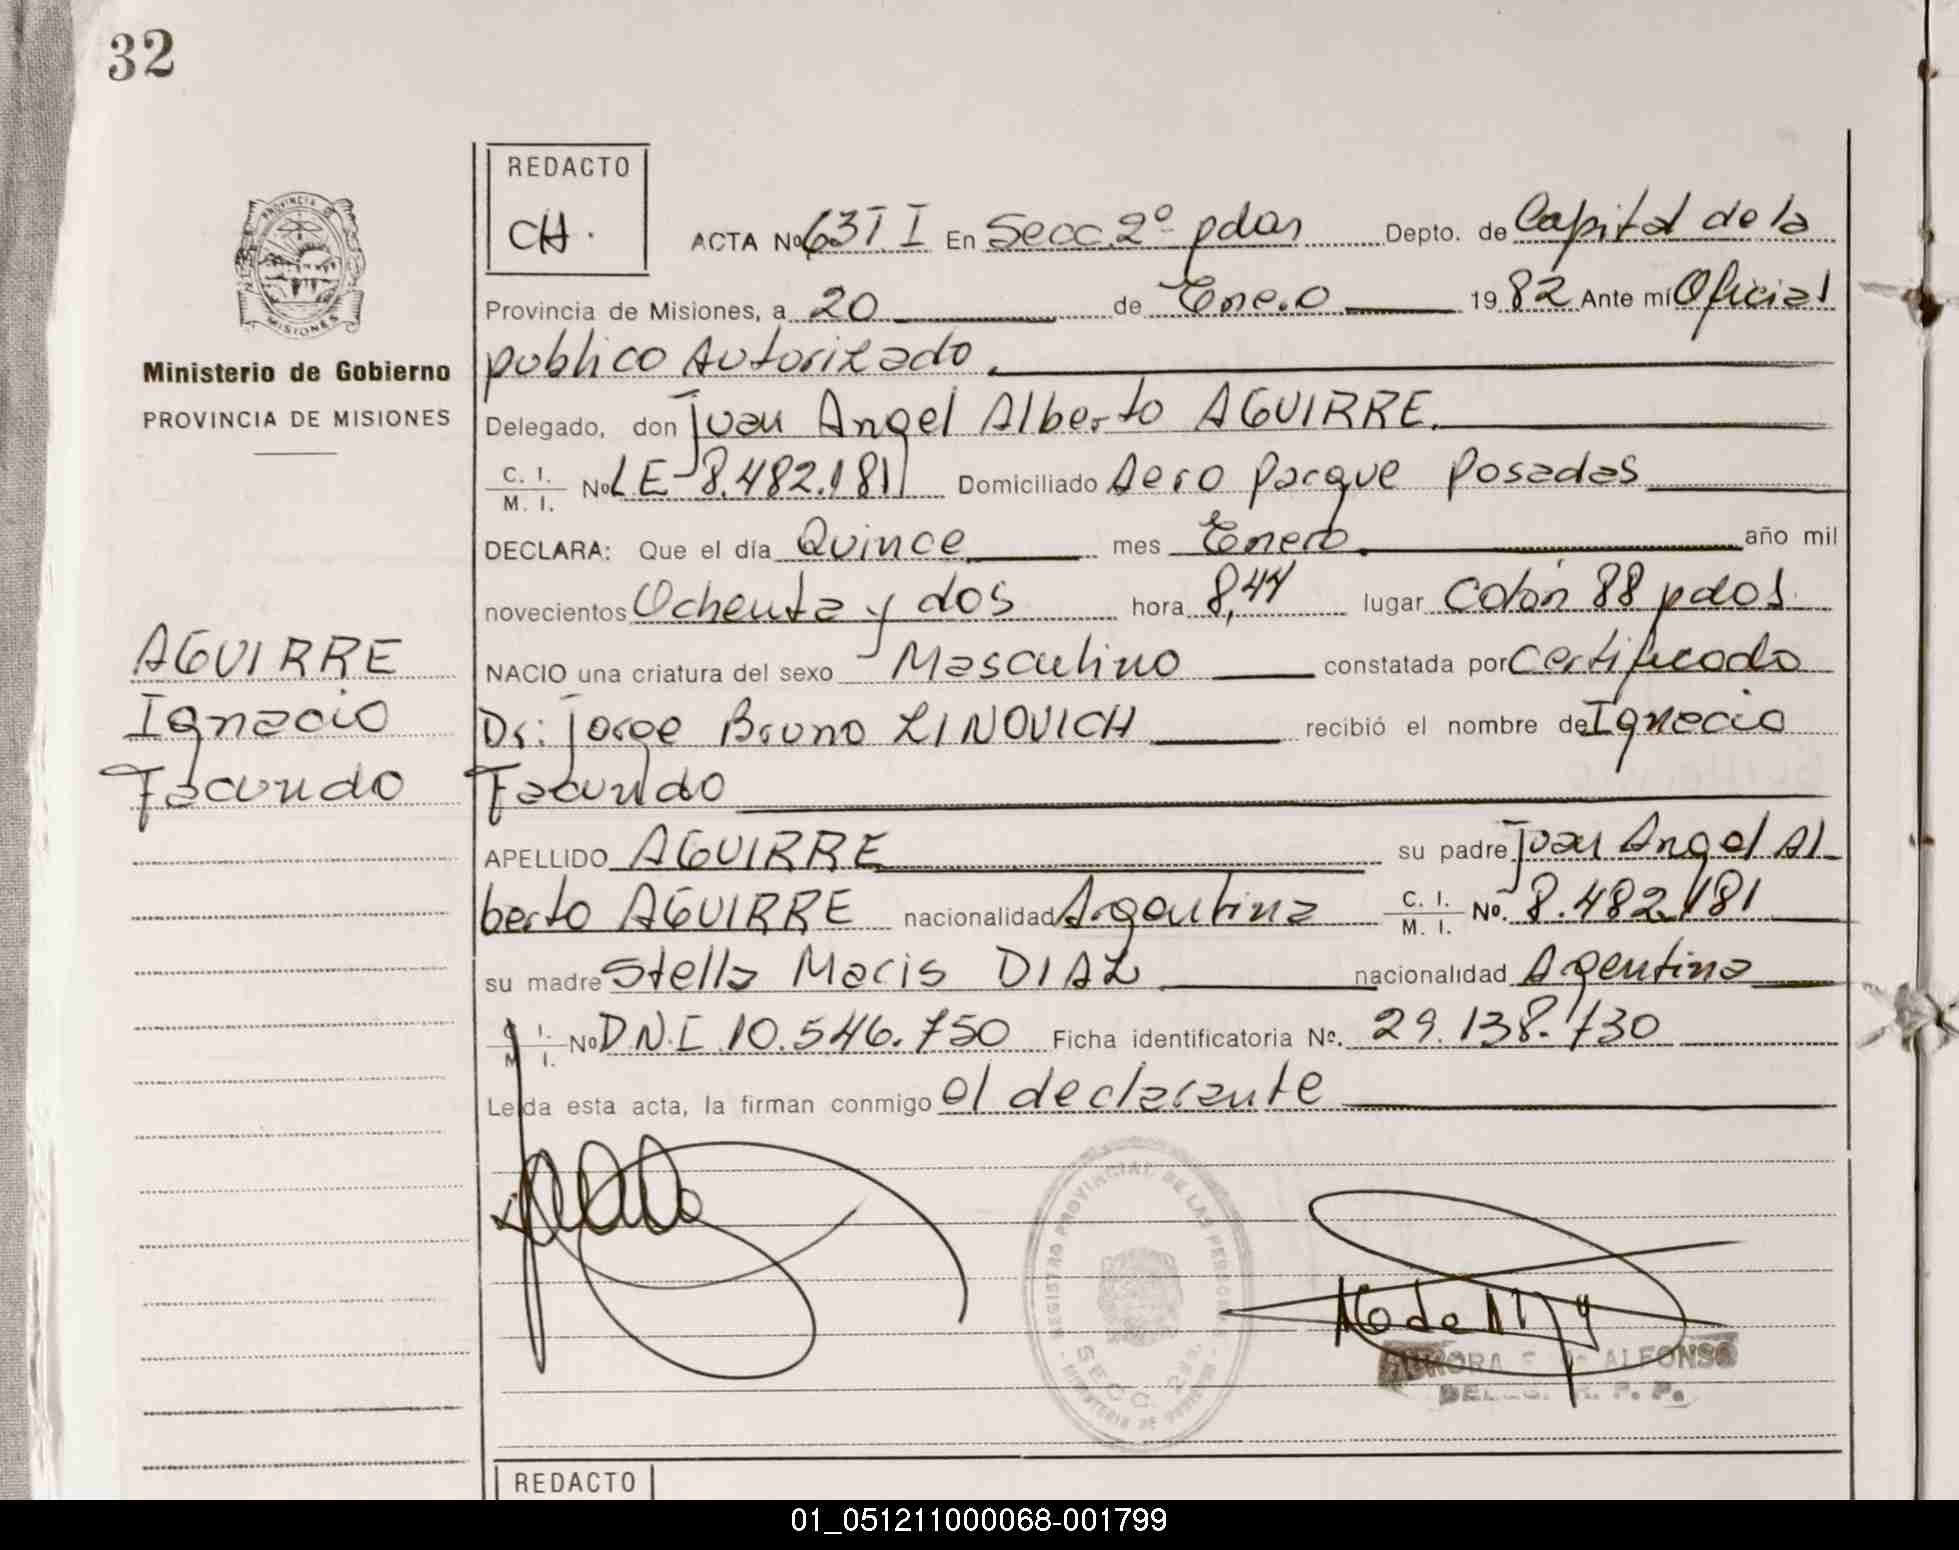 32
REDACTO
CH.
ACTA Nº 63 T I En Secc. 2º pdas Depto. de Capital de la
Provincia de Misiones, a 20 de Enero 1982 Ante mí Oficial
publico Autorizado
Delegado, don Juan Angel Alberto AGUIRRE.
C. I.
M. I. Nº LE 8.482.181 Domiciliado Aero Parque Posadas
DECLARA: Que el día Quince mes Enero año mil
novecientos Ochenta y dos hora 8,44 lugar Colón 88 pdas.
NACIO una criatura del sexo Masculino constatada por Certificado
Dr: Jorge Bruno LINOVICH recibió el nombre de Ignacio
Facundo
APELLIDO AGUIRRE su padre Juan Angel Al
berto AGUIRRE nacionalidad Argentina C. I.
M. I. Nº. 8.482.181
su madre Stella Maris DIAZ nacionalidad Argentina
C. I.
M. I. Nº D.N.I. 10.546.750 Ficha identificatoria Nº. 29.138.730
Leída esta acta, la firman conmigo el declarante
PROVINCIA DE
MISIONES
Ministerio de Gobierno
PROVINCIA DE MISIONES
AGUIRRE
Ignacio
Facundo
REGISTRO PROVINCIAL DE LAS PERSONAS
SECC. 2da.
MINISTERIO DE GOBIERNO
ALFONSO
REDACTO
01_051211000068-001799